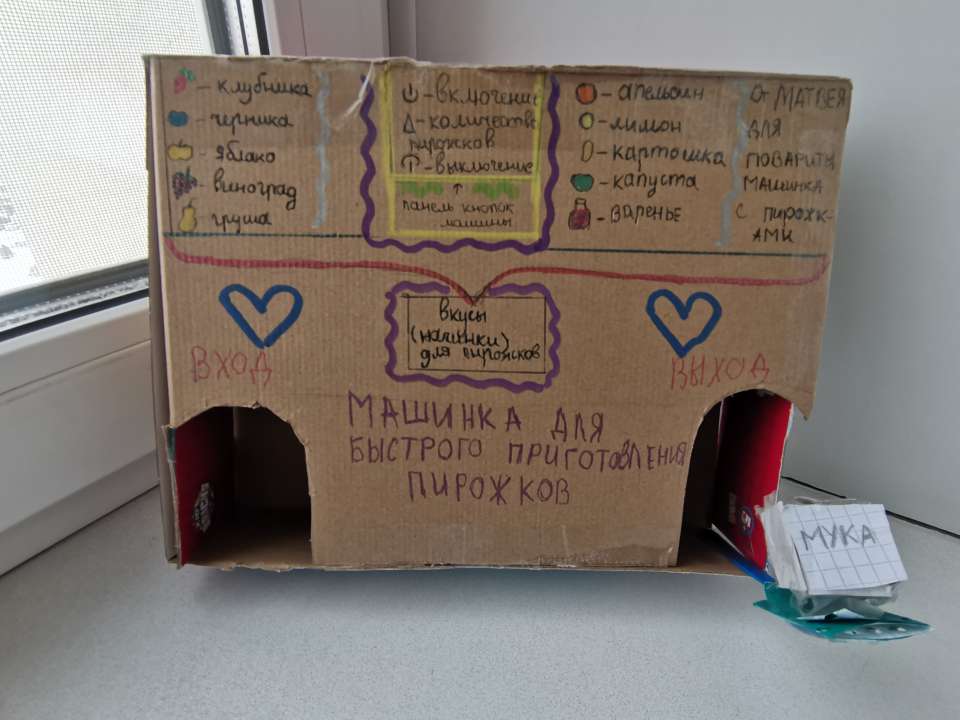 - клубника
- черника
- яблоко
- виноград
- груша
- включение
- количество
пирожков
- выключение
панель кнопок
машины
- апельсин
- лимон
- картошка
- капуста
- варенье
От МАТВЕЯ
ДЛЯ
ПОВАРИТЬ
МАШИНКА
С ПИРОЖК-
АМИ
Вкусы
(начинки)
для пирожков
ВХОД
ВЫХОД
МАШИНКА ДЛЯ
БЫСТРОГО ПРИГОТОВЛЕНИЯ
ПИРОЖКОВ
МУКА